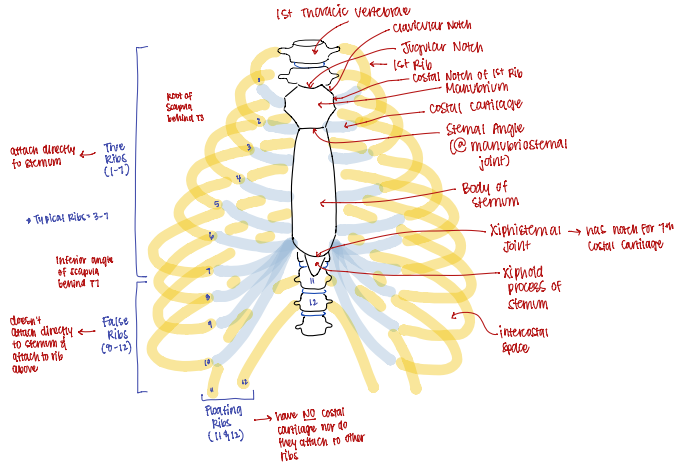 1st Thoracic Vertebrae
Clavicular Notch
Jugular Notch
1st Rib
Costal Notch of 1st Rib
Manubrium
Costal Cartilage
Sternal Angle
(@ manubriosternal
joint)
Body of
sternum
Xiphisternal
Joint
has notch for 7th
costal cartilage
Xiphoid
process of
sternum
intercostal
space
Root of
scapula
behind T3
attach directly
to sternum
True
Ribs
(1-7)
* Typical Ribs = 3-7
Inferior angle
of scapula
behind T7
doesn't
attach directly
to sternum &
attach to rib
above
False
Ribs
(8-12)
1
2
3
4
5
6
7
8
9
10
11
12
11
12
Floating
Ribs
(11 & 12)
have NO costal
cartilage nor do
they attach to other
ribs